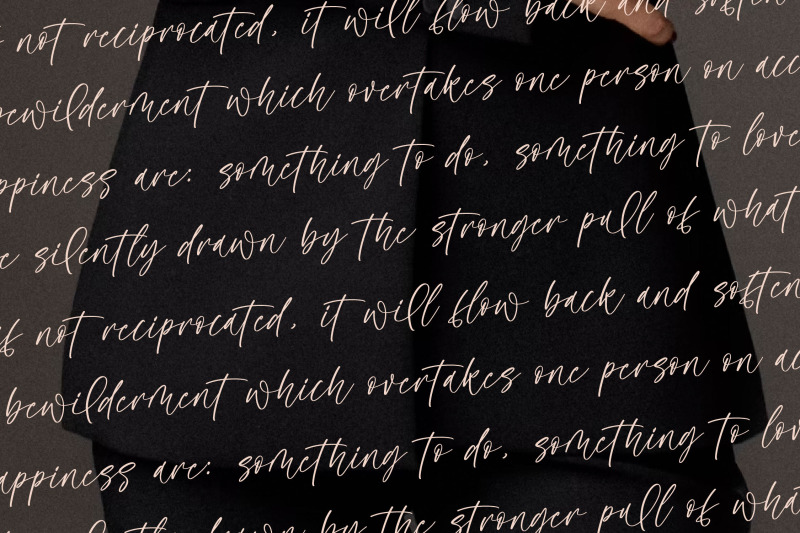 not reciprocated, it will flow back and soften
bewilderment which overtakes one person on acc
ppiness are: something to do, something to love
e silently drawn by the stronger pull of what
if not reciprocated, it will flow back and soften
bewilderment which overtakes one person on ac
appiness are: something to do, something to lov
by the stronger pull of what